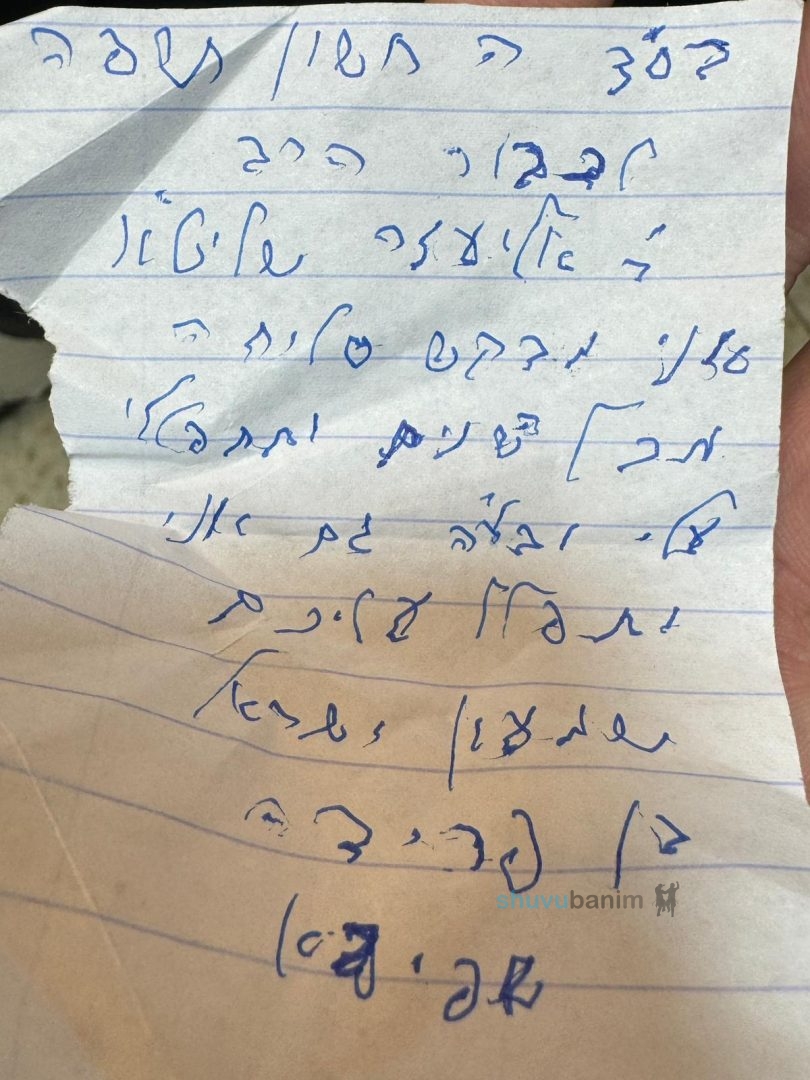 בס"ד ה חשון תשפה
לכבור הרב
ר' אליעזר שליט"א
אני מבקש סליחה
מכל השנים ותתפללי
עלי ובע"ה גם אני
יתפלל עליכם
שמעון ישראל
בן פרידה
shuvubanim